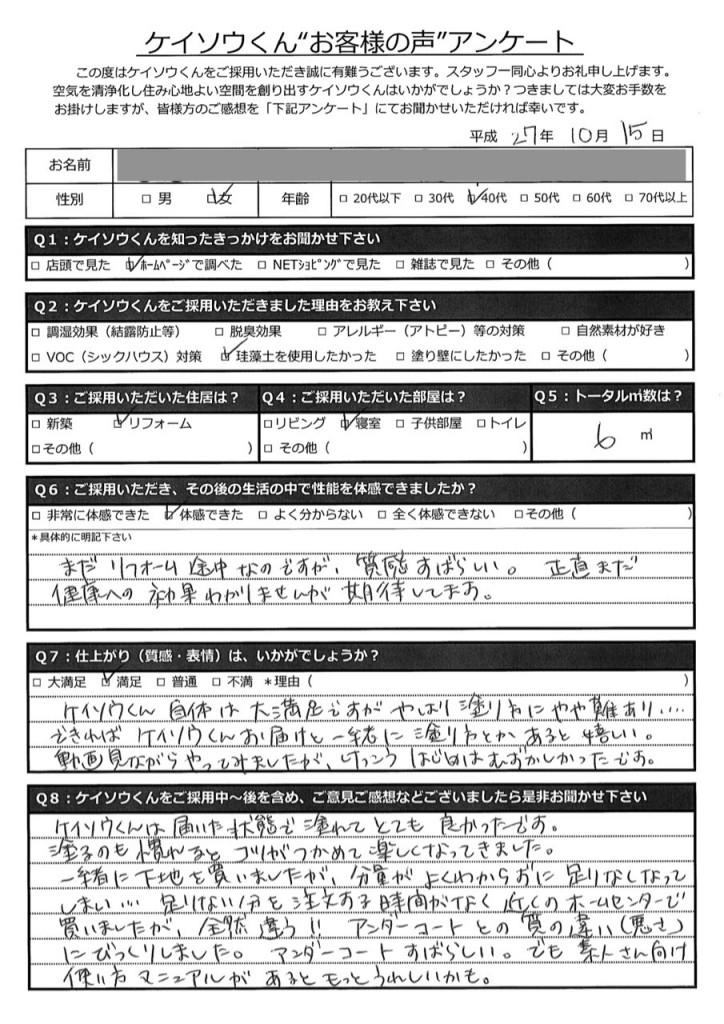 ケイソウくん“お客様の声”アンケート
この度はケイソウくんをご採用いただき誠に有難うございます。スタッフ一同心よりお礼申し上げます。
空気を清浄化し住み心地よい空間を創り出すケイソウくんはいかがでしょうか？つきましては大変お手数を
お掛けしますが、皆様方のご感想を「下記アンケート」にてお聞かせいただければ幸いです。
平成 27年 10月 15日
お名前
性別 □ 男 ☑女 年齢 □ 20代以下 □ 30代 ☑40代 □ 50代 □ 60代 □ 70代以上
Q1：ケイソウくんを知ったきっかけをお聞かせ下さい
□ 店頭で見た ☑ﾎｰﾑﾍﾟｰｼﾞで調べた □ NETｼｮﾋﾟﾝｸﾞで見た □ 雑誌で見た □ その他（ ）
Q2：ケイソウくんをご採用いただきました理由をお教え下さい
□ 調湿効果（結露防止等） □ 脱臭効果 □ アレルギー（アトピー）等の対策 □ 自然素材が好き
□ VOC（シックハウス）対策 ☑ 珪藻土を使用したかった □ 塗り壁にしたかった □ その他（ ）
Q3：ご採用いただいた住居は？ Q4：ご採用いただいた部屋は？ Q5：トータル㎡数は？
□ 新築 ☑リフォーム □リビング ☑寝室 □ 子供部屋 □トイレ 6 ㎡
□その他（ ） □ その他（ ）
Q6：ご採用いただき、その後の生活の中で性能を体感できましたか？
□ 非常に体感できた ☑ 体感できた □ よく分からない □ 全く体感できない □その他（ ）
＊具体的に明記下さい
まだ リフォーム 途中なのですが、質感すばらしい。 正直まだ
健康への 効果わかりませんが 期待してます。
Q7：仕上がり（質感・表情）は、いかがでしょうか？
□ 大満足 ☑ 満足 □ 普通 □ 不満 ＊理由（ ）
ケイソウくん 自体は大満足ですが やはり塗り方にやや難あり….
できれば ケイソウくんお届けと一緒に塗り方とか あると嬉しい。
動画見ながらやってみましたが、けっこう はじめはむずかしかったです。
Q8：ケイソウくんをご採用中～後を含め、ご意見ご感想などございましたら是非お聞かせ下さい
ケイソウくんは 届いた状態で塗れて とても 良かったです。
塗るのも慣れると コツがつかめて楽しくなってきました。
一緒に下地を買いましたが、分量がよくわからずに 足りなくなって
しまい… 足りない分を注文する時間がなく近くのホームセンターで
買いましたが、全然違う!! アンダーコートとの質の違い（悪さ）
にびっくりしました。 アンダーコートすばらしい。でも 素人さん向け
使い方 マニュアルが あるともっとうれしいかも。